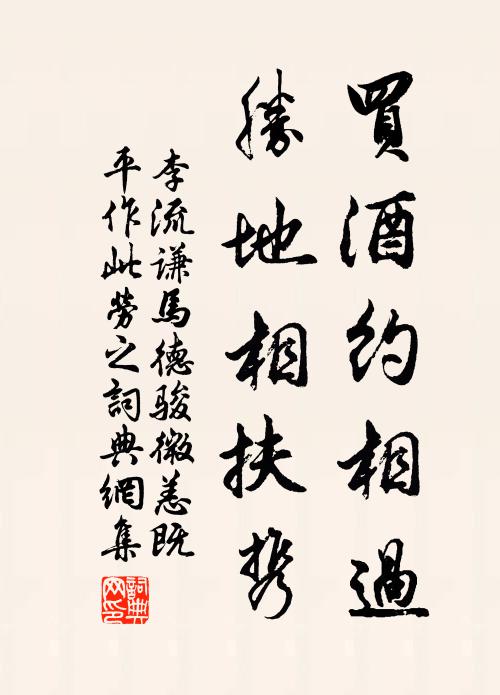 買酒約相過
勝地相扶携
李流谦馬德骏微恙既
平作此劳之詞典網集
詞典网印